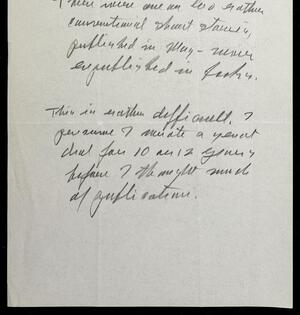 There were one or two rather
conventional short stories,
published in Mag – never
republished in books.
This is rather difficult. I
presume I wrote a great
deal for 10 or 12 years
before I thought much
of publication.